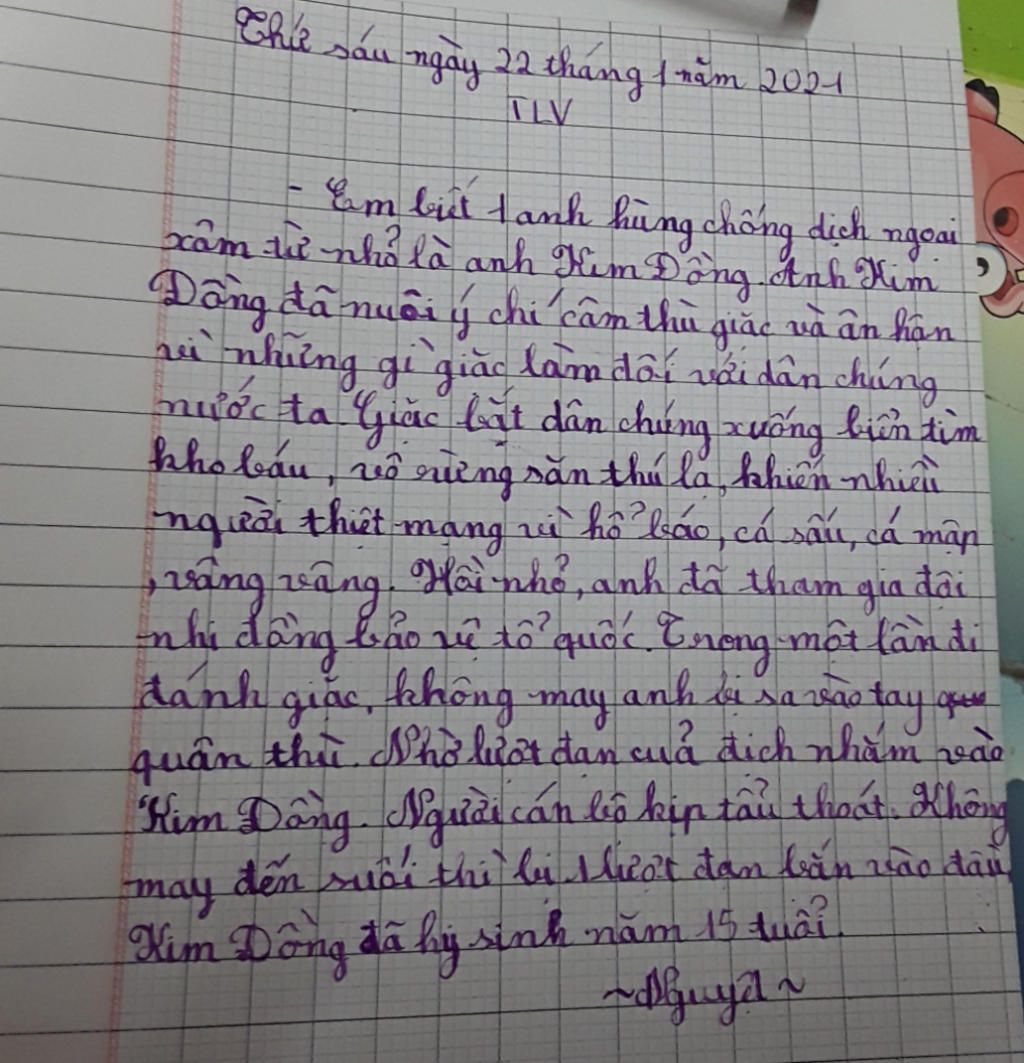 Thứ sáu ngày 22 tháng 1 năm 2021
TLV
- Em biết 1 anh hùng chống dịch ngoại
xâm từ nhỏ là anh Kim Đồng. Anh Kim
Đồng đã nuôi ý chí căm thù giặc và ân hận
vì những gì giặc làm đối với dân chúng
nước ta. Giặc bắt dân chúng xuống biển tìm
kho báu, vô rừng săn thú lạ, khiến nhiều
người thiệt mạng vì hổ báo, cá sấu, cá mập
, vâng vâng. Hồi nhỏ, anh đã tham gia đội
nhi đồng bảo vệ tổ quốc. Trong một lần đi
đánh giặc, không may anh bị sa vào tay
quân thù. Nhờ lượt đạn cuả địch nhằm vào
Kim Đồng. Người cán bộ kịp tẩu thoát. Không
may đến suối thì bị 1 lượt đạn bắn vào đầu
Kim Đồng đã hy sinh năm 15 tuổi.
~ Nguyê ~